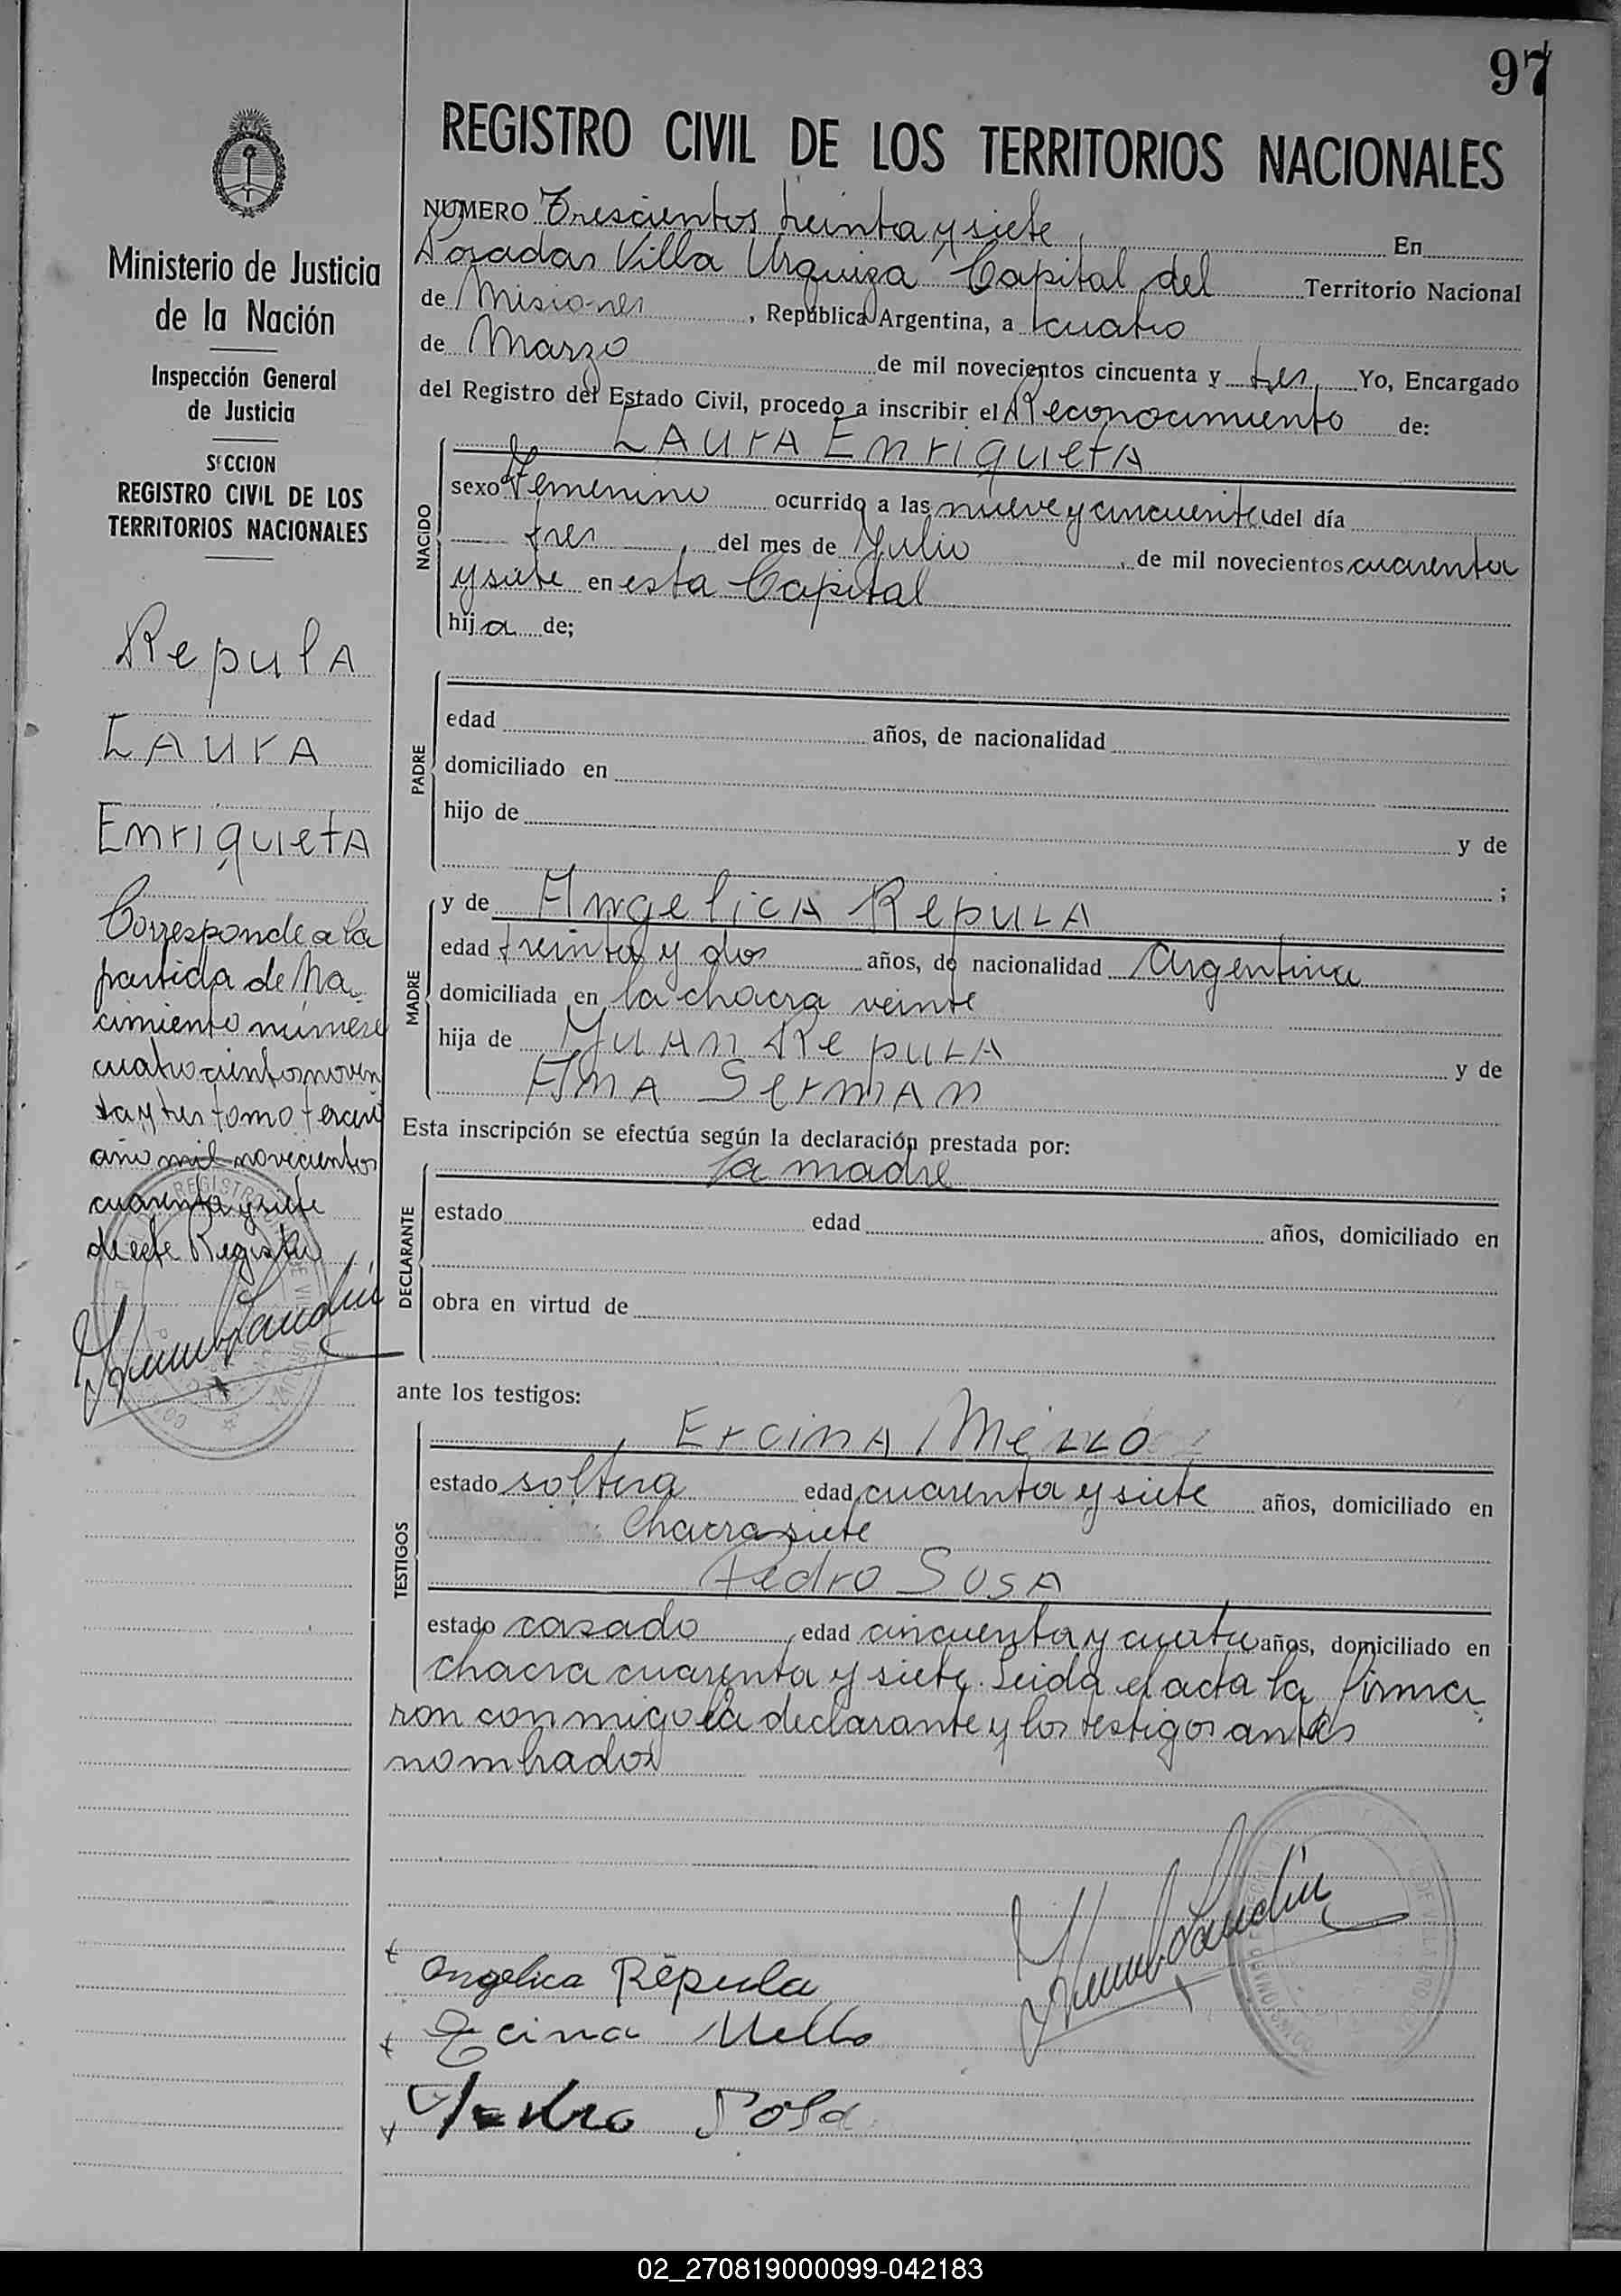 97
REGISTRO CIVIL DE LOS TERRITORIOS NACIONALES
Ministerio de Justicia
de la Nación
Inspección General
de Justicia
SECCION
REGISTRO CIVIL DE LOS
TERRITORIOS NACIONALES
Repula
Laura
Enriqueta
Corresponde a la
partida de Na
cimiento número
cuatrocientos noven
ta y tres tomo tercero
año mil novecientos
cuarenta y siete
de este Registro
NUMERO Trescientos treinta y siete En
Posadas Villa Urquiza Capital del Territorio Nacional
de Misiones, República Argentina, a cuatro
de Marzo de mil novecientos cincuenta y tres, Yo, Encargado
del Registro del Estado Civil, procedo a inscribir el Reconocimiento de:
Laura Enriqueta
NACIDO
sexo Femenino ocurrido a las nueve y cincuenta del día
tres, del mes de Julio, de mil novecientos cuarenta
y siete en esta Capital
hija de;
PADRE
edad años, de nacionalidad
domiciliado en
hijo de y de
;
MADRE
y de Angelica Repula
edad treinta y dos años, de nacionalidad Argentina
domiciliada en la chacra veinte
hija de Juan Repula y de
Ana Serman
Esta inscripción se efectúa según la declaración prestada por:
la madre
DECLARANTE
estado edad años, domiciliado en
obra en virtud de
ante los testigos:
TESTIGOS
Ercina Mello
estado soltera edad cuarenta y siete años, domiciliado en
Chacra siete
Pedro Sosa
estado casado, edad cincuenta y cuatro años, domiciliado en
chacra cuarenta y siete. Leida el acta la firma
ron conmigo la declarante y los testigos antes
nombrados
Angelica Repula
Ecina Mello
Pedro Sosa
02_270819000099-042183